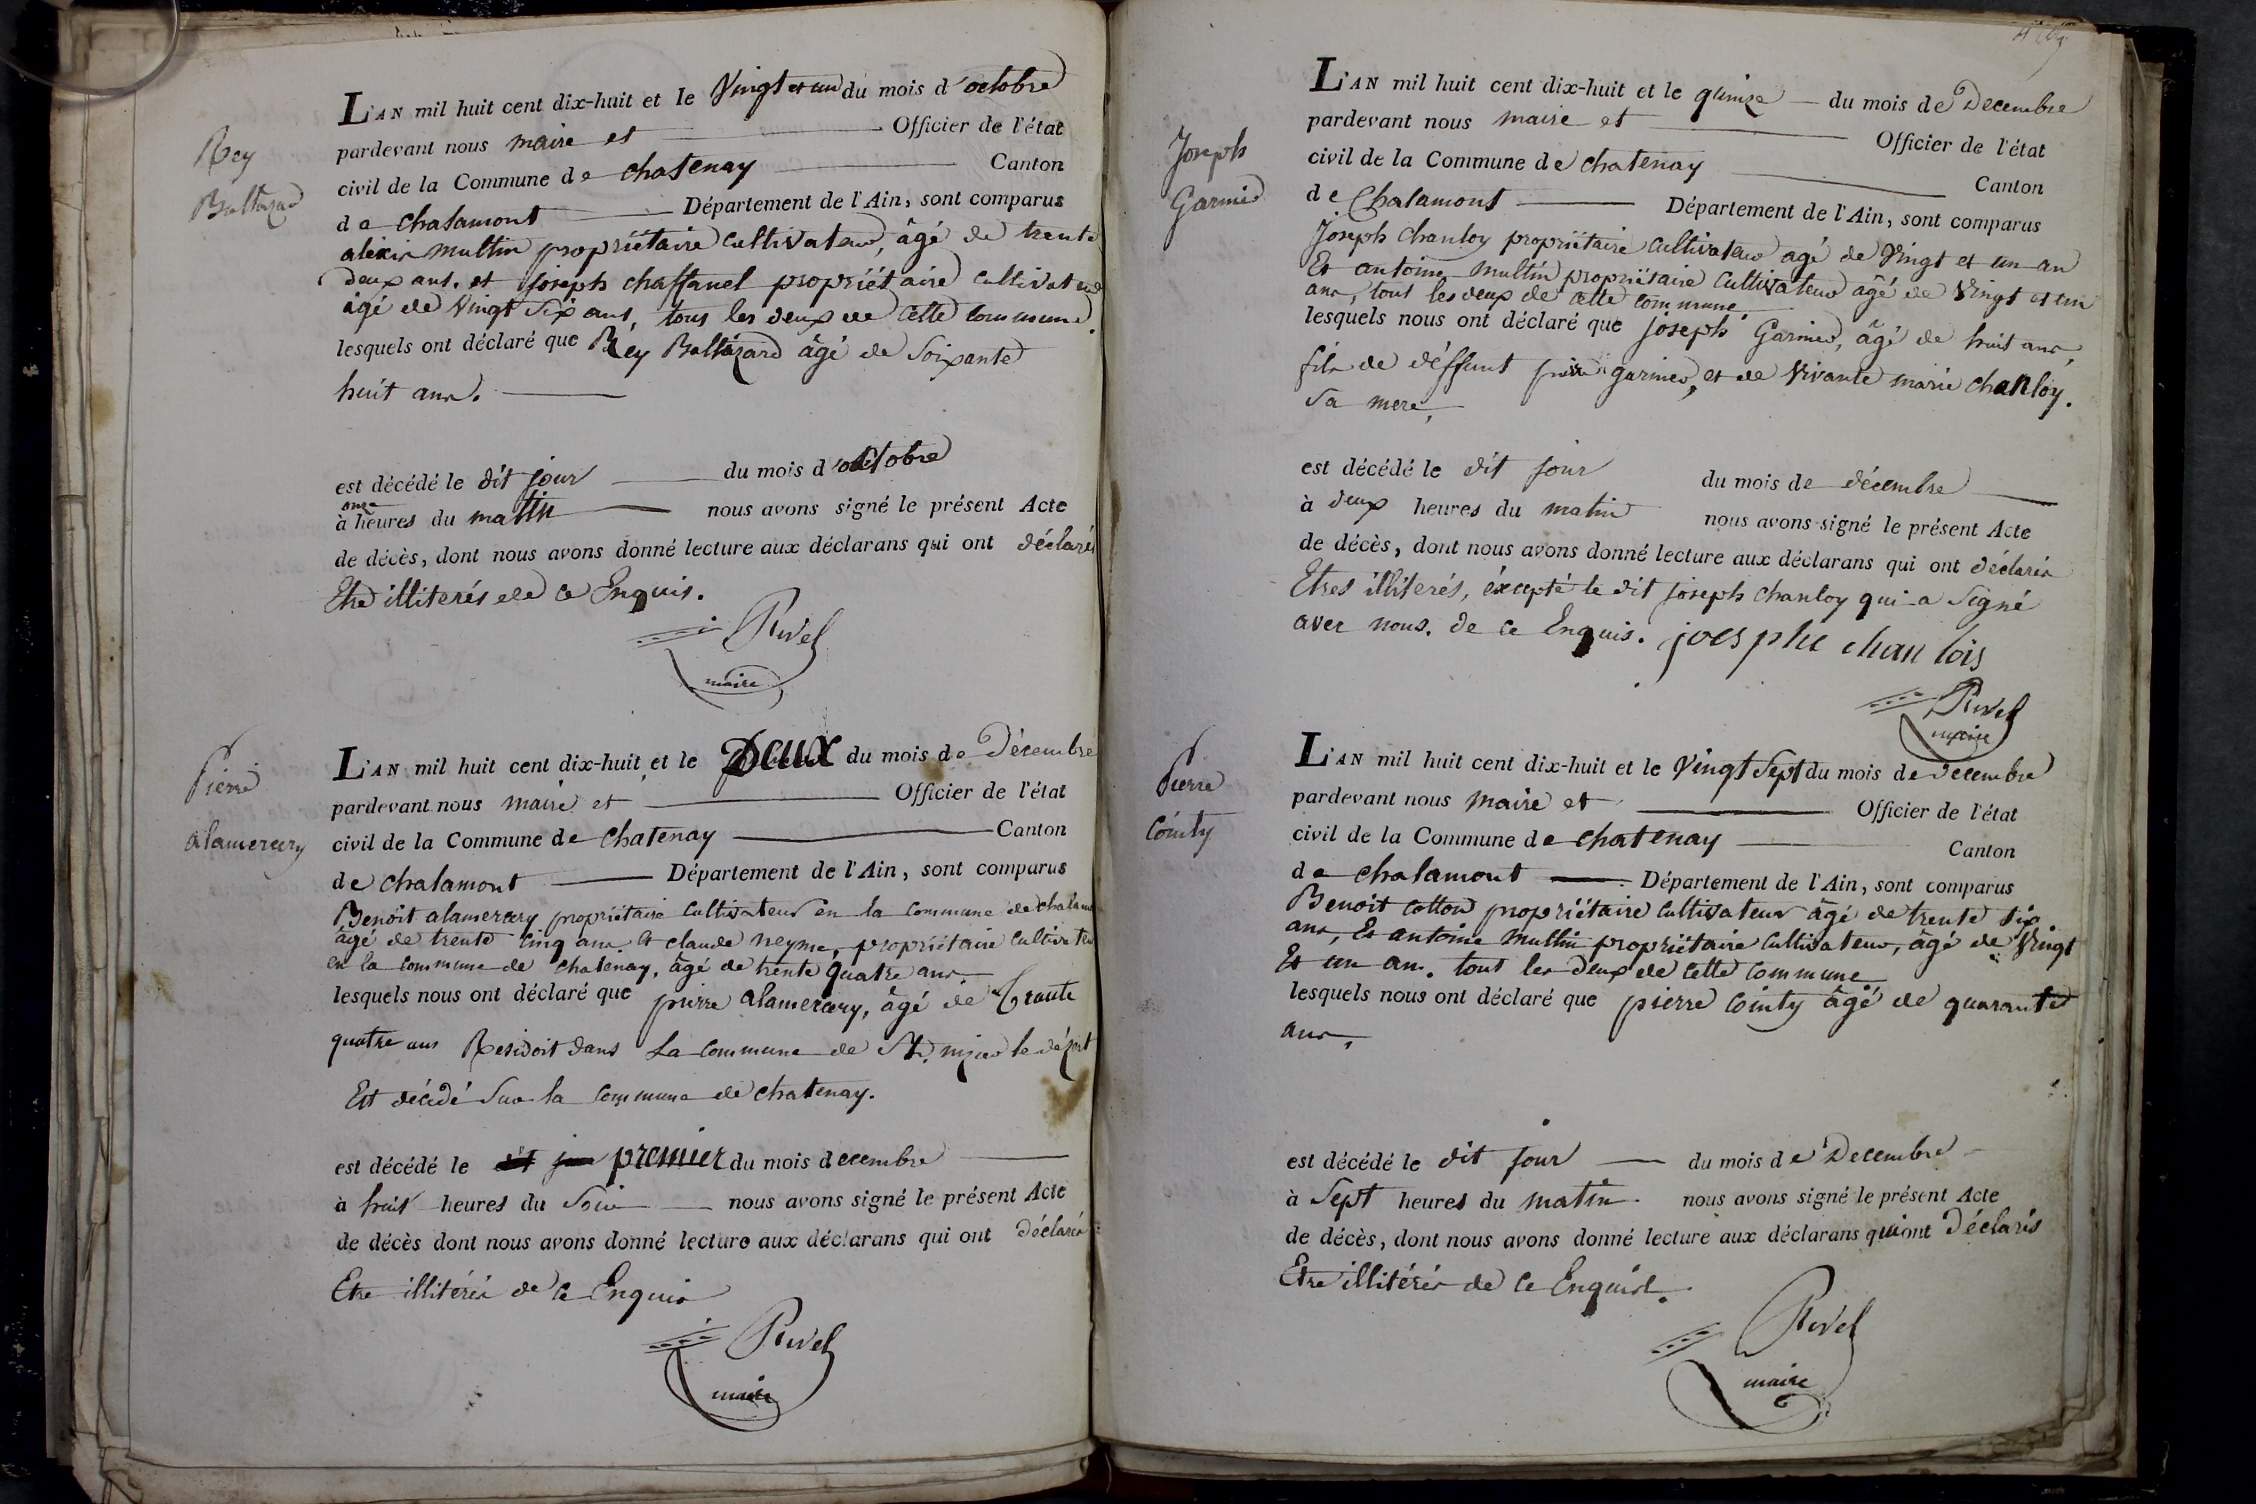 Rey
Baltazard
L'AN mil huit cent dix-huit et le Vingt et un du mois d'octobre
pardevant nous maire et Officier de l'état
civil de la Commune de chatenay Canton
de chalamont Département de l'Ain, sont comparus
alexis multin propriétaire cultivateur, âgé de trente
deux ans. et joseph chaffanel propriétaire cultivateur
âgé de Vingt Six ans, tous les deux de cette commune.
lesquels ont déclaré que Rey Baltazard âgé de Soixante
huit ans.
est décédé le dit jour du mois d'octobre
onze
à heures du matin nous avons signé le présent Acte
de décès, dont nous avons donné lecture aux déclarans qui ont déclarés
Etre illiterés de ce Enquis.
Rivel
maire
Pierre
alamercery
L'AN mil huit cent dix-huit et le Deux du mois de Décembre
pardevant nous maire et Officier de l'état
civil de la Commune de Chatenay Canton
de chalamont Département de l'Ain, sont comparus
Benoit alamercery propriétaire cultivateur en la commune de
âgé de trente cinq ans et claude neyme, propriétaire cultivateur
en la commune de chatenay, âgé de trente quatre ans
lesquels nous ont déclaré que pierre alamercery, âgé de trente
quatre ans Residoit dans La commune de St. nizier le désert
Est décédé Sur la commune de chatenay.
est décédé le dit jour premier du mois decembre
à huit heures du Soir nous avons signé le présent Acte
de décès dont nous avons donné lecture aux déclarans qui ont déclarés
Etre illitérés de ce Enquis
Rivel
maire
Joseph
Garnier
L'AN mil huit cent dix-huit et le quinze du mois de Decembre
pardevant nous maire et Officier de l'état
civil de la Commune de chatenay Canton
de Chalamont Département de l'Ain, sont comparus
Joseph chanloy propriétaire cultivateur agé de Vingt et un an
Et antoine multin propriétaire cultivateur âgé de Vingt et un
ans, tout les deux de cette commune.
lesquels nous ont déclaré que joseph Garnier, âgé de huit ans,
fils de déffunt pierre garnier, et de vivante marie chanloy.
Sa mere,
est décédé le dit jour du mois de décembre
à deux heures du matin nous avons signé le présent Acte
de décès, dont nous avons donné lecture aux déclarans qui ont déclarés
Etres illiterés, éxcepté le dit joseph chanloy qui a Signé
avec nous. de ce Enquis. joesphe chan lois
Rivel
maire
Pierre
Cointy
L'AN mil huit cent dix-huit et le Vingt Sept du mois de decembre
pardevant nous maire et Officier de l'état
civil de la Commune de chatenay Canton
de chalamont Département de l'Ain, sont comparus
Benoit cotton propriétaire cultivateur âgé de trente Six
ans, Et antoine multin propriétaire cultivateur, âgé de Vingt
Et un an. tout les deux de cette commune
lesquels nous ont déclaré que pierre Cointy âgé de quarante
ans,
est décédé le dit jour du mois de Decembre
à Sept heures du matin nous avons signé le présent Acte
de décès, dont nous avons donné lecture aux déclarans qui ont Déclarés
Etre illitérés de ce Enquist.
Rivel
maire